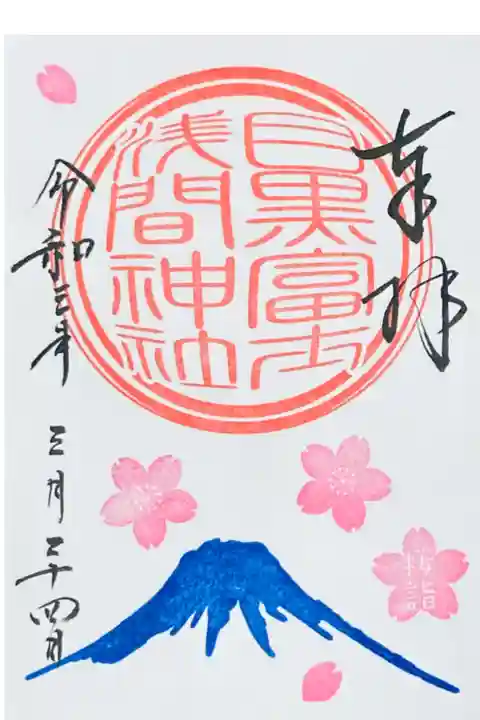 奉拝
目黒富士
浅間神社
令和三年
三月二十四日
桜詣